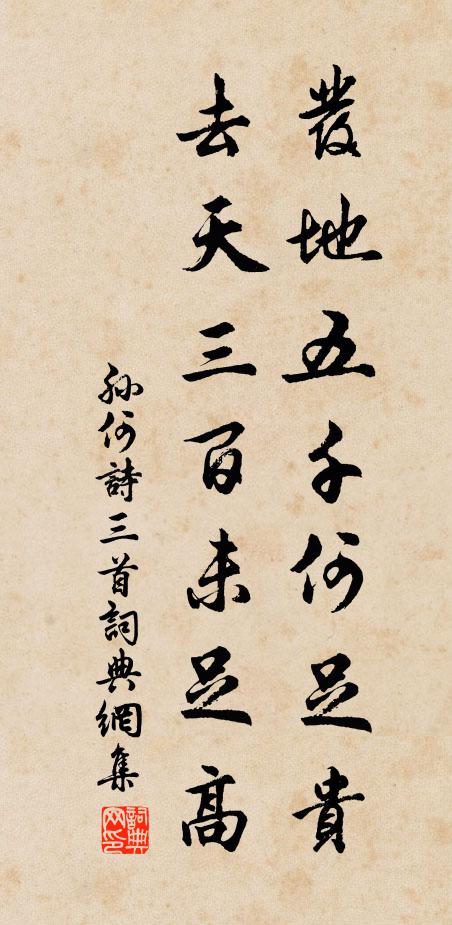 發地五千何足貴
去天三百未足高
孫何詩三首詞典網集
詞典
网印